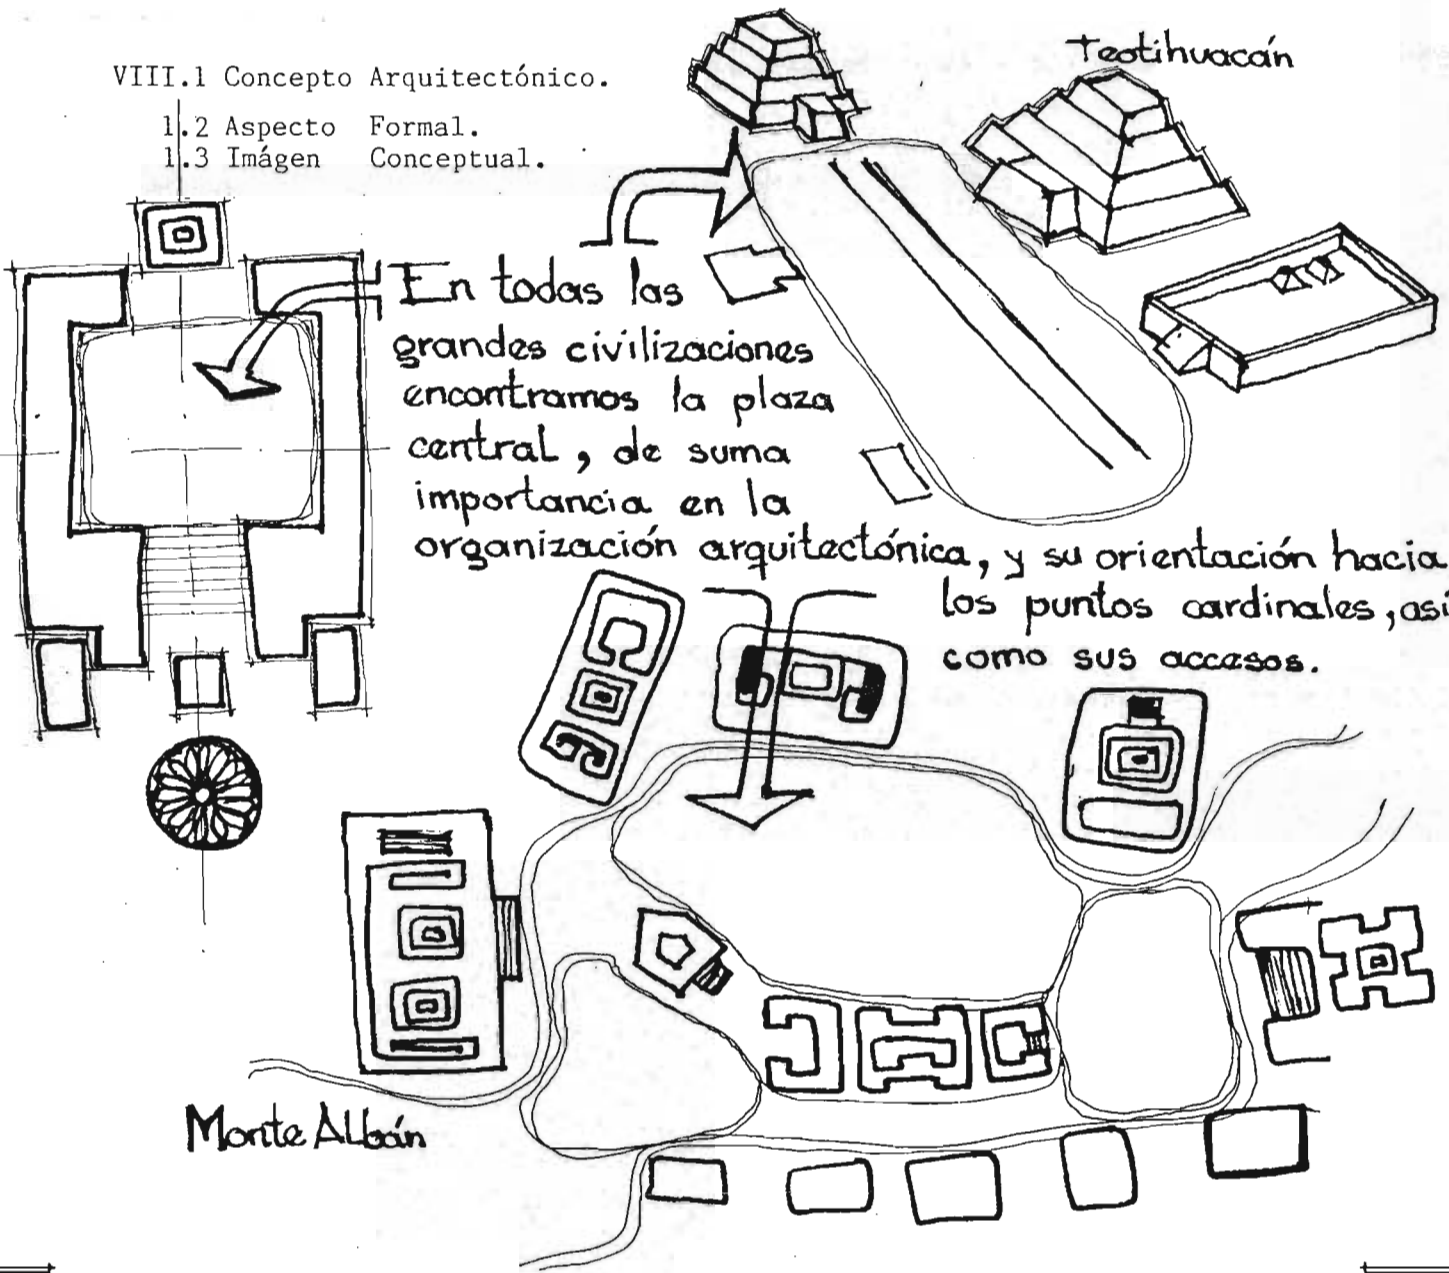 VIII.1 Concepto Arquitectónico.
1.2 Aspecto Formal.
1.3 Imágen Conceptual.
Teotihuacán
En todas las
grandes civilizaciones
encontramos la plaza
central, de suma
importancia en la
organización arquitectónica, y su orientación hacia
los puntos cardinales, asi
como sus accesos.
Monte Albán